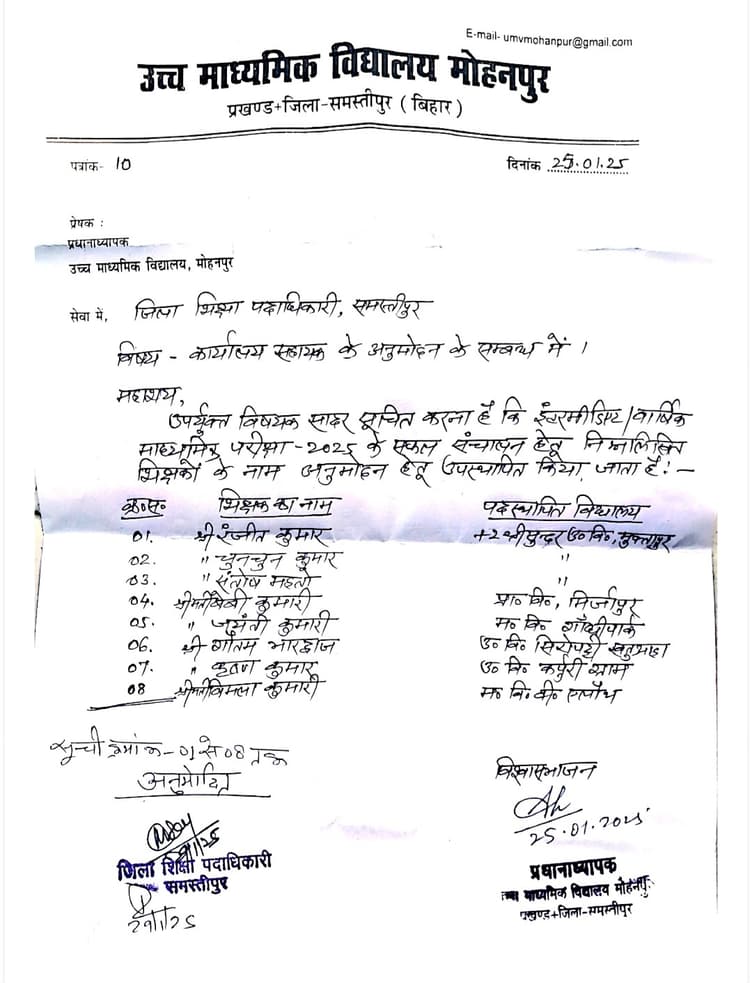 E-mail- umvmohanpur@gmail.com
उच्च माध्यमिक विद्यालय मोहनपुर
प्रखण्ड+जिला-समस्तीपुर (बिहार)
पत्रांक- 10 दिनांक 25.01.25
प्रेषक :
प्रधानाध्यापक
उच्च माध्यमिक विद्यालय, मोहनपुर
सेवा में, जिला शिक्षा पदाधिकारी, समस्तीपुर
विषय - कार्यालय सहायक के अनुमोदन के सम्बन्ध में ।
महाशय,
उपर्युक्त विषयक सादर सूचित करना है कि इंटरमीडिएट/वार्षिक
माध्यमिक परीक्षा-2025 के सफल संचालन हेतू निम्नलिखित
शिक्षकों के नाम अनुमोदन हेतू उपस्थापित किया जाता है:-
क्र०स० शिक्षक का नाम पदस्थापित विद्यालय
01. श्री रंजीत कुमार +2 श्री सुन्दर उ० वि०, मुक्तापुर
02. " चुनचुन कुमार "
03. " संतोष महतो "
04. श्रीमती बेबी कुमारी प्रा० वि०, मिर्जापुर
05. " जयंती कुमारी म० वि० गाँधीपार्क
06. श्री गौतम भारद्वाज उ० वि० सिरोपट्टी खतुआहा
07. " कृष्ण कुमार उ० वि० कर्पुरी ग्राम
08 श्रीमती विमला कुमारी म० वि०
सूची क्रमांक-01 से 08 तक
अनुमोदित
विश्वासभाजन
25.01.2025
जिला शिक्षा पदाधिकारी
समस्तीपुर
29/1/25
प्रधानाध्यापक
उच्च माध्यमिक विद्यालय मोहनपुर
प्रखण्ड+जिला-समस्तीपुर